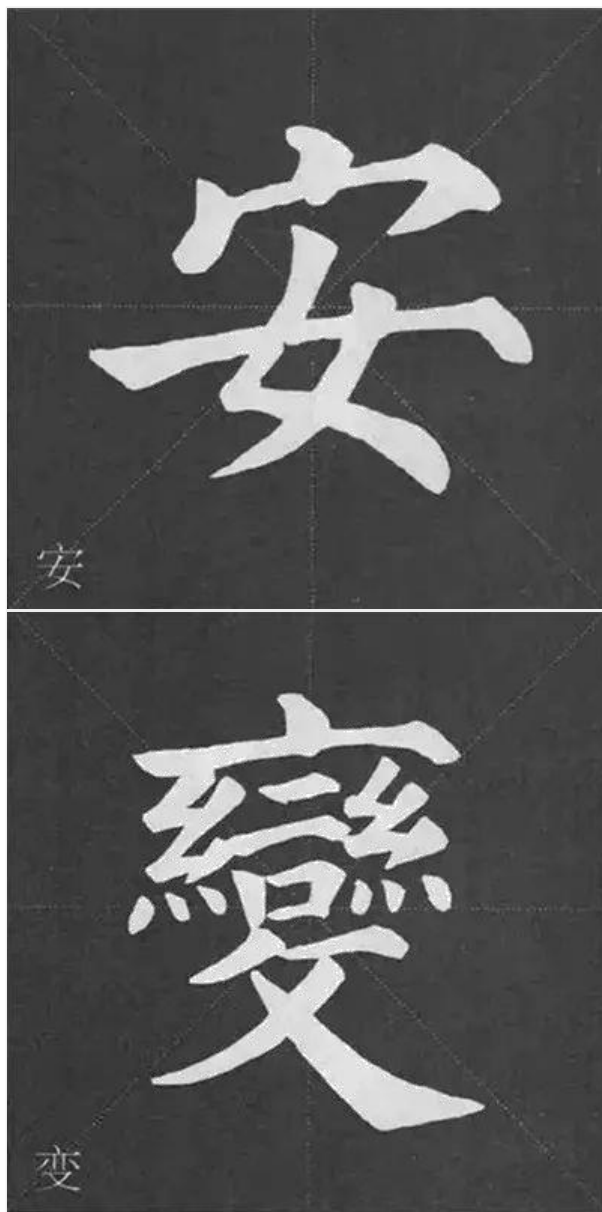 安
安
變
变